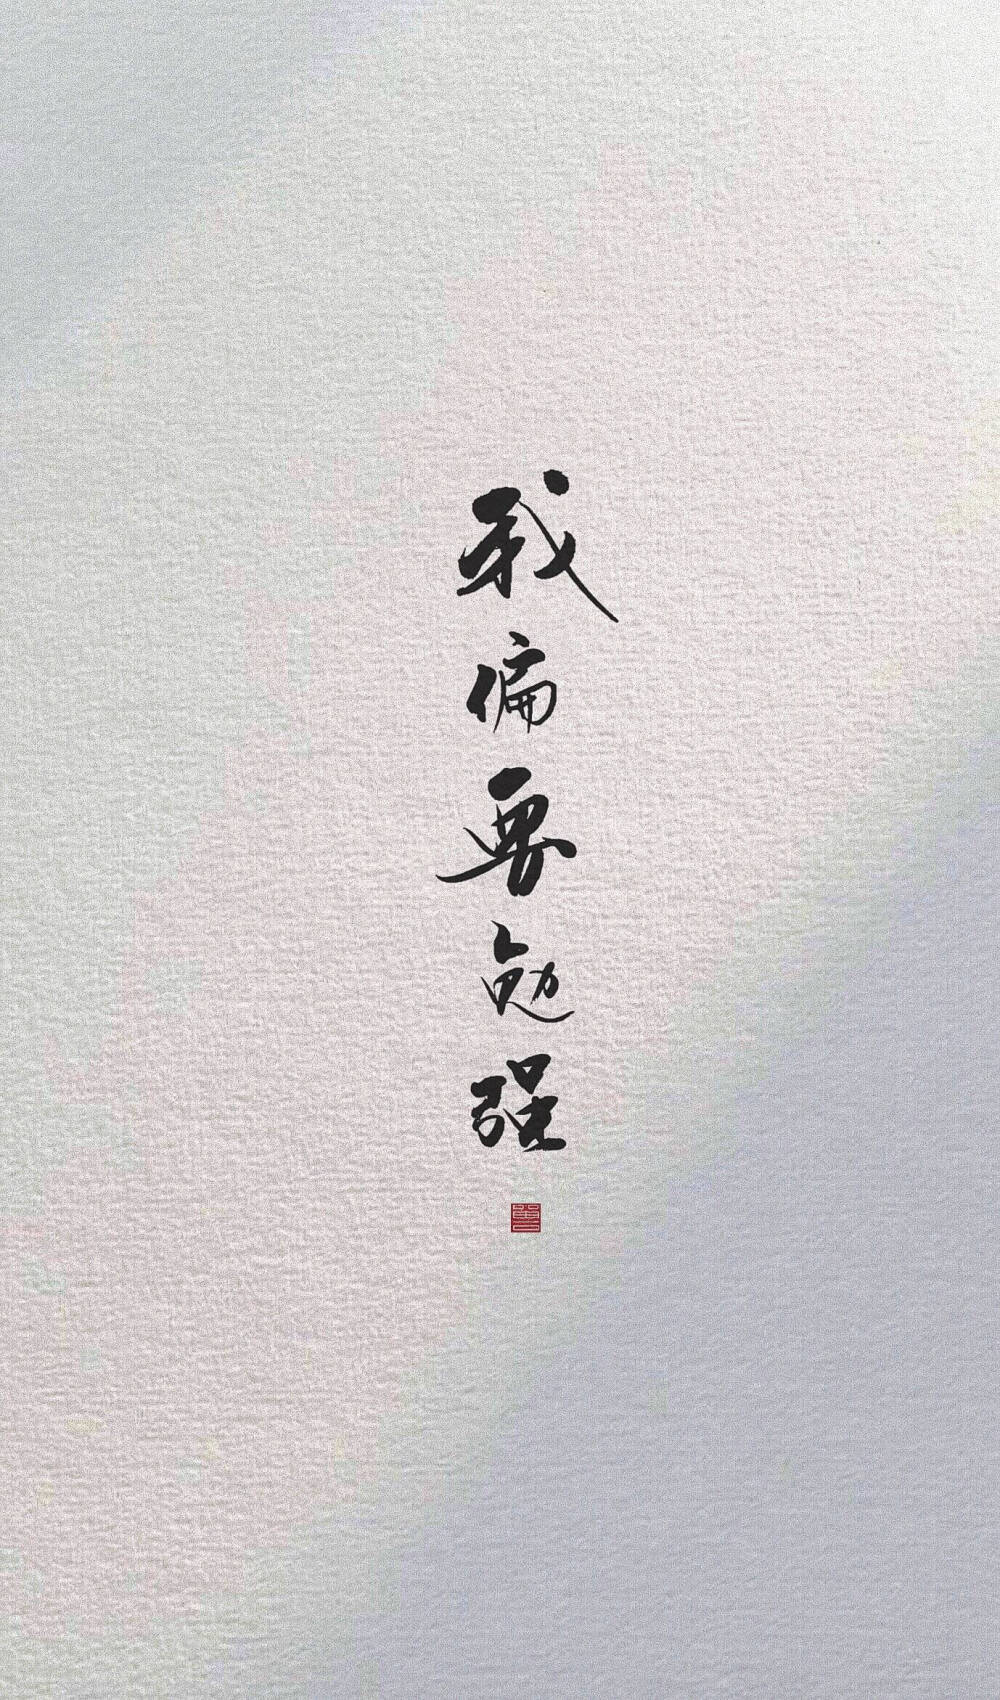 我偏要勉强